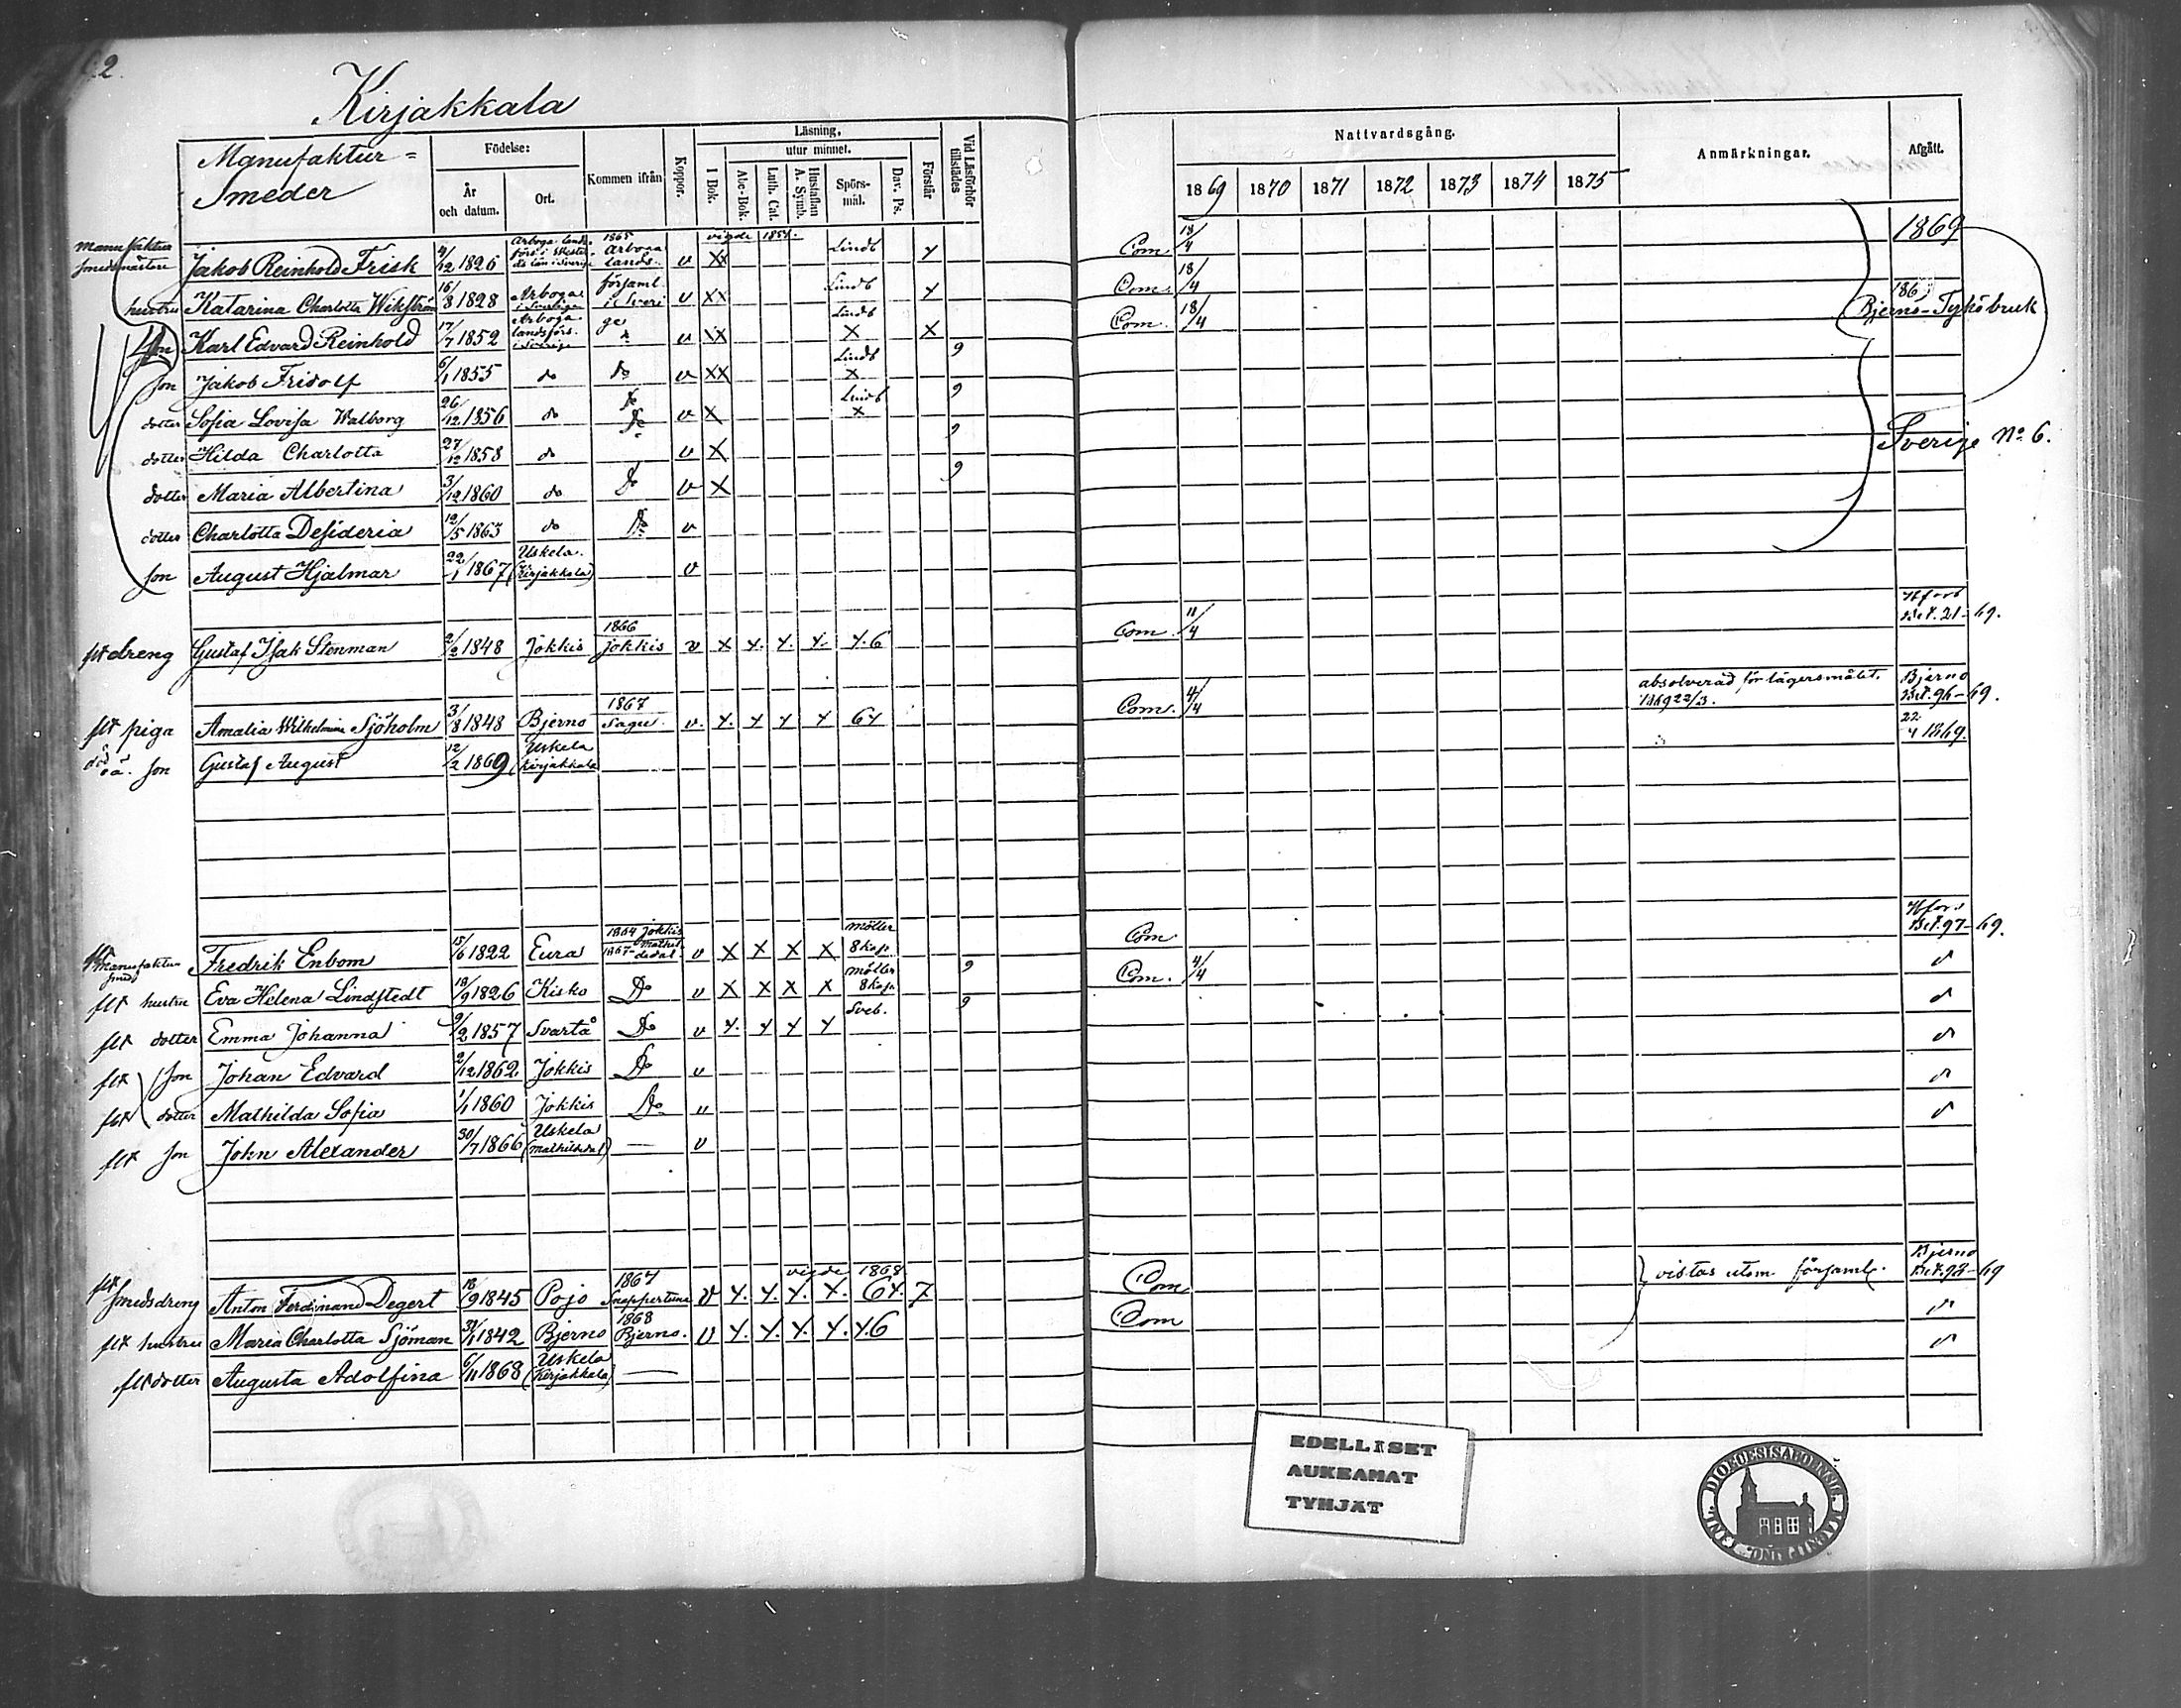 2.
Kirjakkala
Manufaktur=
Smeder
Födelse:
År
och datum.
Ort.
Kommen ifrån
Koppor.
Läsning.
I Bok.
utur minnet.
Abc-Bok.
Luth. Cat.
Hustaflan
A. Symb.
Spörs-
mål.
Dav. Ps.
Förstår
Vid Läsförhör
tillstädes
Nattvardsgång.
1869 1870 1871 1872 1873 1874 1875
Anmärkningar.
Afgått.
manufaktur
smedmästare Jakob Reinhold Frisk 4/12 1826 Arboga lands- 1865 Arboga lands. v XX vigde 1851. Lindb y Com. 18/4 1869
hustru Katarina Charlotta Wikström 16/8 1828 Arboga i Sverige församl. i Sveri v XX Lindb y Com. 18/4 186
Bjerno-Tykö bruk
son Karl Edvard Reinhold 17/7 1852 Arboga landsförs. i Sverige ge v XX Lindb X X Com. 18/4
son Jakob Fridolf 6/1 1855 do do v XX Lindb X 9
dotter Sofia Lovisa Walborg 26/12 1856 do Do v X Lindb X 9
dotter Hilda Charlotta 27/12 1858 do Do v X 9 Sverige No 6.
dotter Maria Albertina 3/12 1860 do Do v X 9
dotter Charlotta Desideria 12/5 1863 do Do v
son August Hjalmar 22/1 1867 Uskela. (Kirjakkala) v
flt dreng Gustaf Isak Stenman 2/2 1848 Jokkis 1866 Jokkis v x y. y. y. y.6 Com. 11/4 Hfors Bet. 21-69.
flt piga Amalia Wilhelmina Sjöholm 3/8 1848 Bjerno 1867 Sagu. v. y. y y y 6y Com. 4/4 absolverad för lägersmålet. 1869 22/3. Bjerno Bet. 96-69.
död oä. son Gustaf August 12/2 1869 Uskela (Kirjakkala 22/4 1869.
flt manufaktur
smed Fredrik Enbom 15/6 1822 Eura 1864 Jokkis 1867 Mathildedal. v X X X X möller 8 kap. Com. Hfors Bet. 97-69.
flt hustru Eva Helena Lindstedt 18/9 1826 Kisko Do v X X X X möller 8 kap 9 Com. 4/4
flt dotter Emma Johanna 9/2 1857 Svartå Do v y. y y y Sveb. 9
flt son Johan Edvard 2/12 1862 Jokkis Do v
flt dotter Mathilda Sofia 1/1 1860 Jokkis Do v
flt son John Alexander 30/7 1866 Uskela (Mathildedal) — v
flt
smedsdreng Anton Ferdinand Degert 18/9 1845 Pojo 1864 Snappertuna v y. y. y. y. vigde 1868 6y. 7 Com vistas utom församl. Bjerno Bet. 93-69
flt hustru Maria Charlotta Sjöman 30/1 1842 Bjerno 1868 Bjerno. v y. y. y. y. y.6 Com
flt dotter Augusta Adolfina 6/11 1868 Uskela (Kirjakkala) —
EDELLISET
AUKEAMAT
TYHJÄT